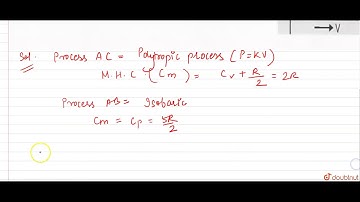 → V
Sol. Process AC = Polytropic process (P=KV)
M.H.C (Cm) = Cv + R/2 = 2R
Process AB = Isobaric
Cm = Cp = 5R/2
doubtnut